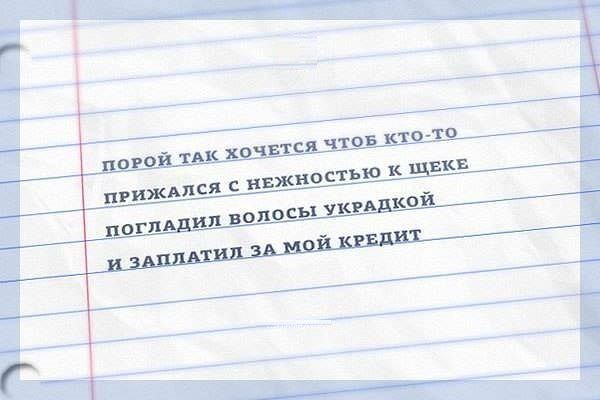 ПОРОЙ ТАК ХОЧЕТСЯ ЧТОБ КТО-ТО
ПРИЖАЛСЯ С НЕЖНОСТЬЮ К ЩЕКЕ
ПОГЛАДИЛ ВОЛОСЫ УКРАДКОЙ
И ЗАПЛАТИЛ ЗА МОЙ КРЕДИТ